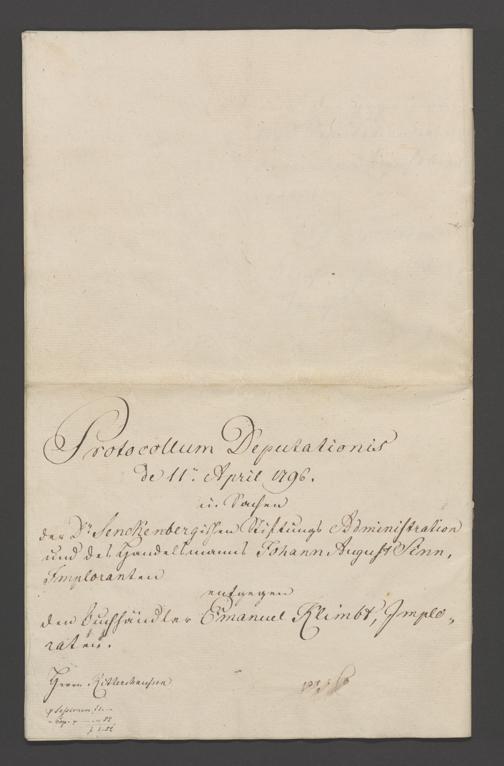 Protocollum Deputationis
de 11ⁿ April 1796.
in Sachen
der Dr Senckenbergischen Stiftungs Administration
und des Handelsmanns Johann August Senn,
Imploranten
entgegen
den Buchhändler Emanuel Klimbt, Implo„
raten.
Herrn